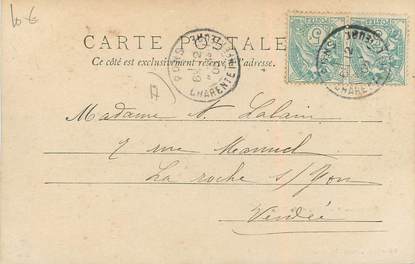 10 €
CARTE POSTALE
Ce côté est exclusivement réservé à l'adresse.
PONS
CHARENTE INFRE
Madame A. Lalain
2 rue Manuel
La roche s/ Yon
Vendée